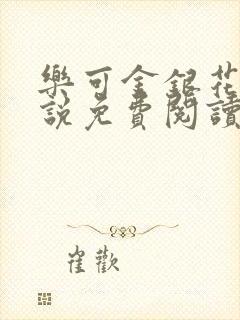 樂可金銀花
說免費閱讀
崔歡